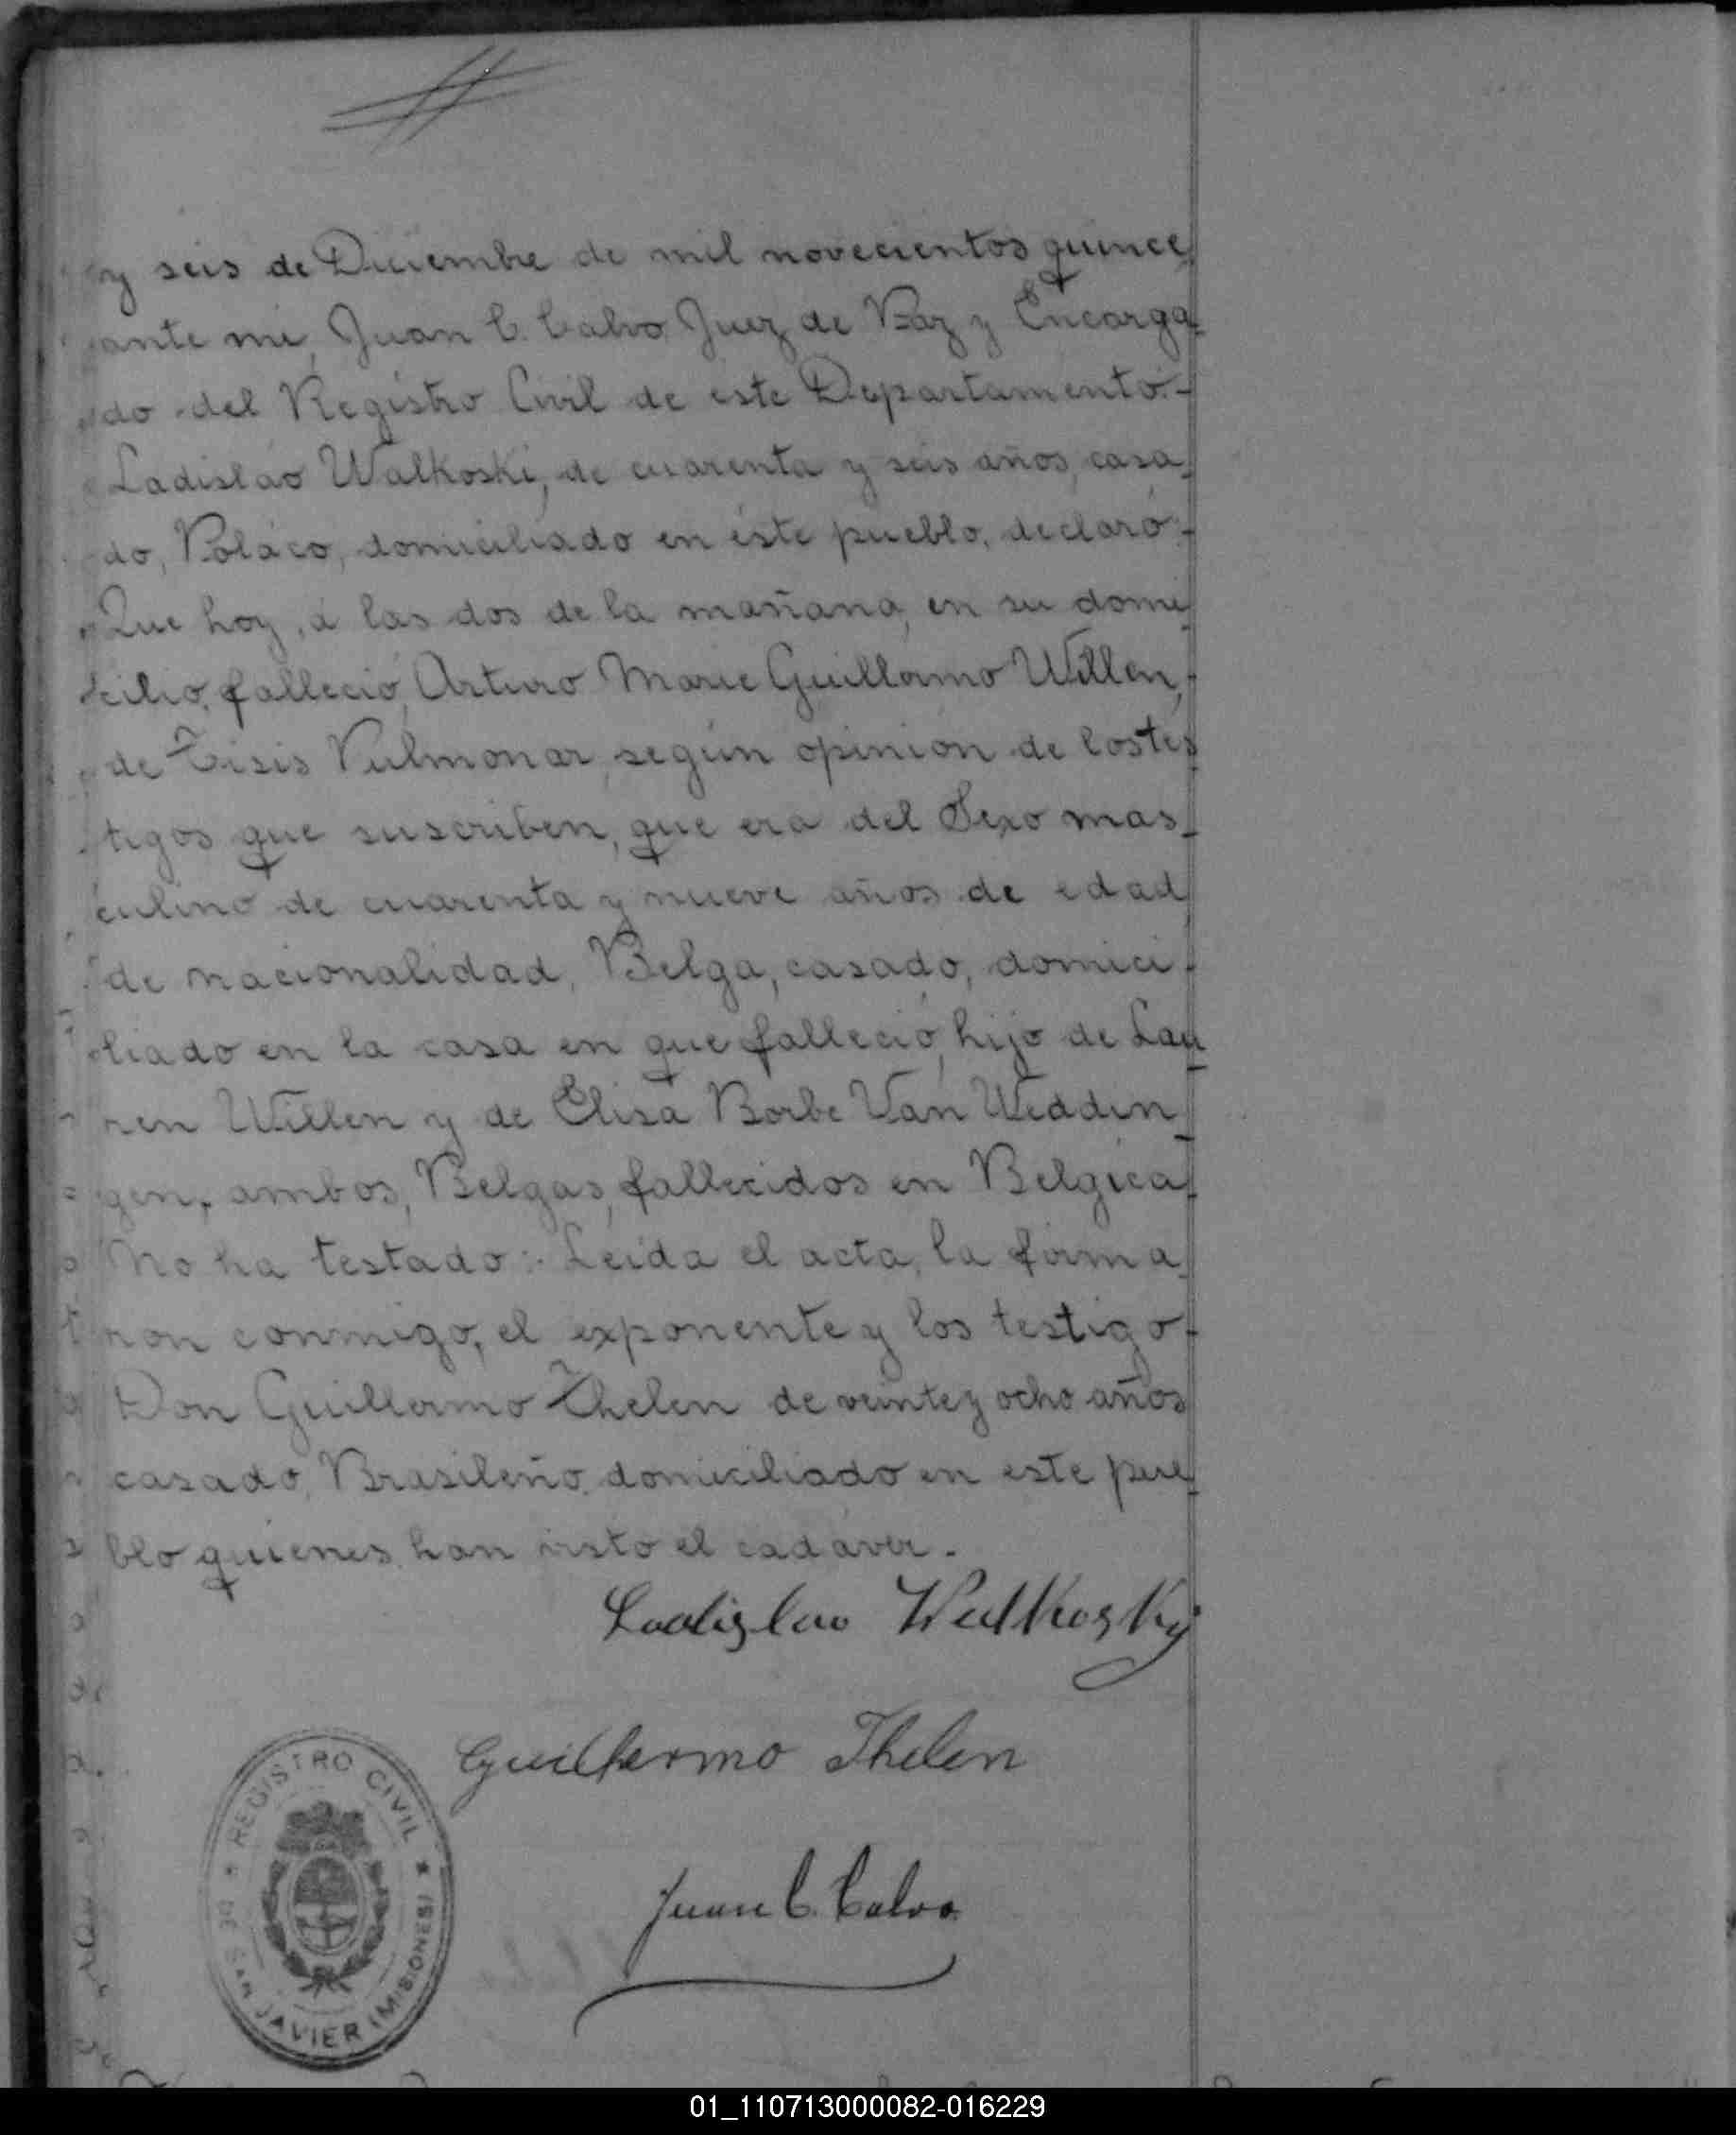 y seis de Diciembre de mil novecientos quince
ante mi, Juan C. Calvo Juez de Paz y Encarga-
do del Registro Civil de este Departamento.-
Ladislao Walkoski, de cuarenta y seis años, casa-
do, Poláco, domiciliado en éste pueblo, declaró:-
Que hoy, á las dos de la mañana, en su domi-
cilio, falleció, Arturo Marie Guillermo Willen,-
de Tisis Pulmonar, según opinión de los tes-
tigos que suscriben, que era del Sexo mas-
culino de cuarenta y nueve años de edad
de nacionalidad, Belga, casado, domici-
liado en la casa en que falleció, hijo de Lau-
ren Willen y de Elisa Borbe Van Weddin-
gen, ambos, Belgas, fallecidos en Belgica
No ha testado:- Leida el acta, la firma-
ron conmigo, el exponente y los testigo-
Don Guillermo Thelen de veinte y ocho años
casado, Brasileño, domiciliado en este pue-
blo quienes han visto el cadáver.-
Ladislao Walkosky
Guilhermo Thelen
Juan C. Calvo
REGISTRO CIVIL
DE SAN JAVIER (MISIONES)
01_110713000082-016229